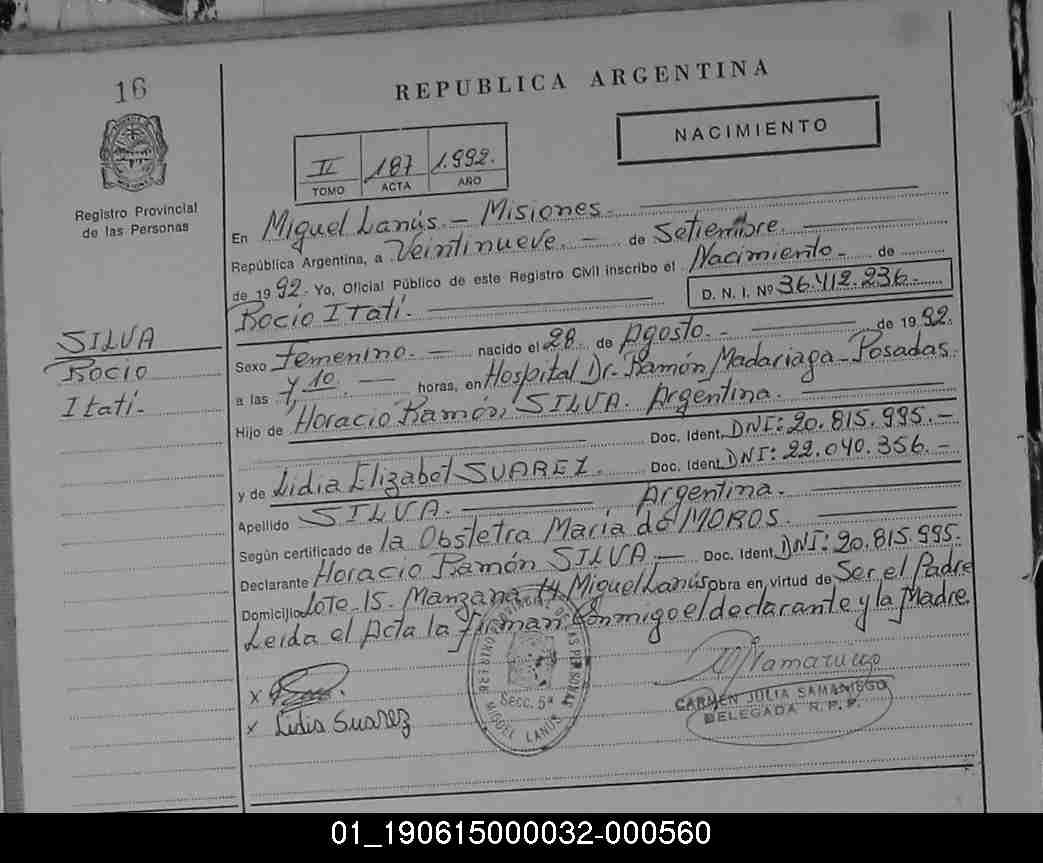 16
REPUBLICA ARGENTINA
NACIMIENTO
II 187 1.992.
TOMO ACTA AÑO
Registro Provincial
de las Personas
En Miguel Lanús.- Misiones.
República Argentina, a Veintinueve.- de Setiembre.
de 1992. Yo, Oficial Público de este Registro Civil inscribo el Nacimiento.- de
Rocío Itatí. D. N. I. Nº 36.412.236.
SILVA
Rocio
Itatí-
Sexo Femenino.- nacido el 28 de Agosto.- de 1992.
a las 7,10 horas, en Hospital Dr. Ramón Madariaga-Posadas.
Hijo de Horacio Ramón, SILVA. Argentina.
Doc. Ident. DNI: 20.815.995.-
y de Lidia Elizabet SUAREZ. Doc. Ident. DNI: 22.040.356.-
Argentina.
Apellido SILVA.
Según certificado de la Obstetra María de MOROS.
Declarante Horacio Ramón SILVA.- Doc. Ident. DNI: 20.815.995.
Domicilio Lote 15. Manzana 14 Miguel Lanús obra en virtud de Ser el Padre
Leida el Acta la firman Conmigo el declarante y la Madre.
X
X Lidia Suarez
PROVINCIAL DE LAS PERSONAS
Secc. 5ª
MIGUEL LANUS
CARMEN JULIA SAMANIEGO
DELEGADA R.P.P.
01_190615000032-000560